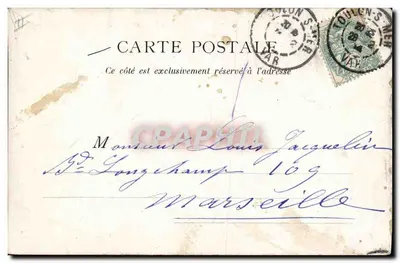 CARTE POSTALE
Ce côté est exclusivement réservé à l'adresse
TOULON-S-MER
VAR
TOULON-S-MER
VAR
CRAPSHI
Monsieur Louis Jacquelin
Bd. Longchamp 109
Marseille